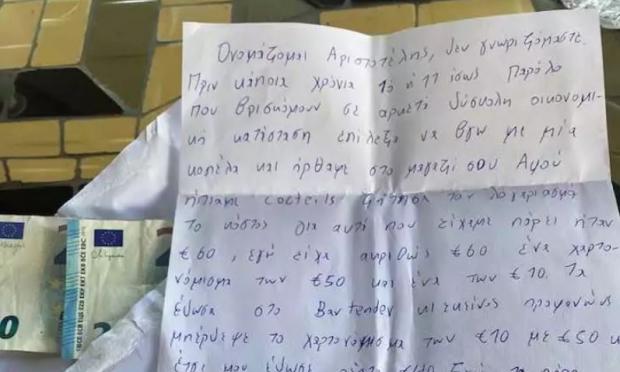 Ονομάζομαι Αριστοτέλης, δεν γνωριζόμαστε.
Πριν κάποια χρόνια 10 ή 11 ίσως Παρόλο
που βρισκόμουν σε αρκετά δύσκολη οικονομι-
κή κατάσταση επίλεξα να βγω με μία
κοπέλα και ήρθαμε στο μαγαζί σου Αφού
ήπιαμε coctails ζήτησα τον λογαριασμό
Το κόστος για αυτά που είχαμε πάρει ήταν
€60, εγώ είχα ακριβώς €60 ένα χαρτο-
νόμισμα των €50 και ένα των €10. Τα
έδωσα στο Bartender κι εκείνος προφανώς
μπέρδεψε το χαρτονόμισμα των €10 με €50 κ
έτσι μου έδωσε